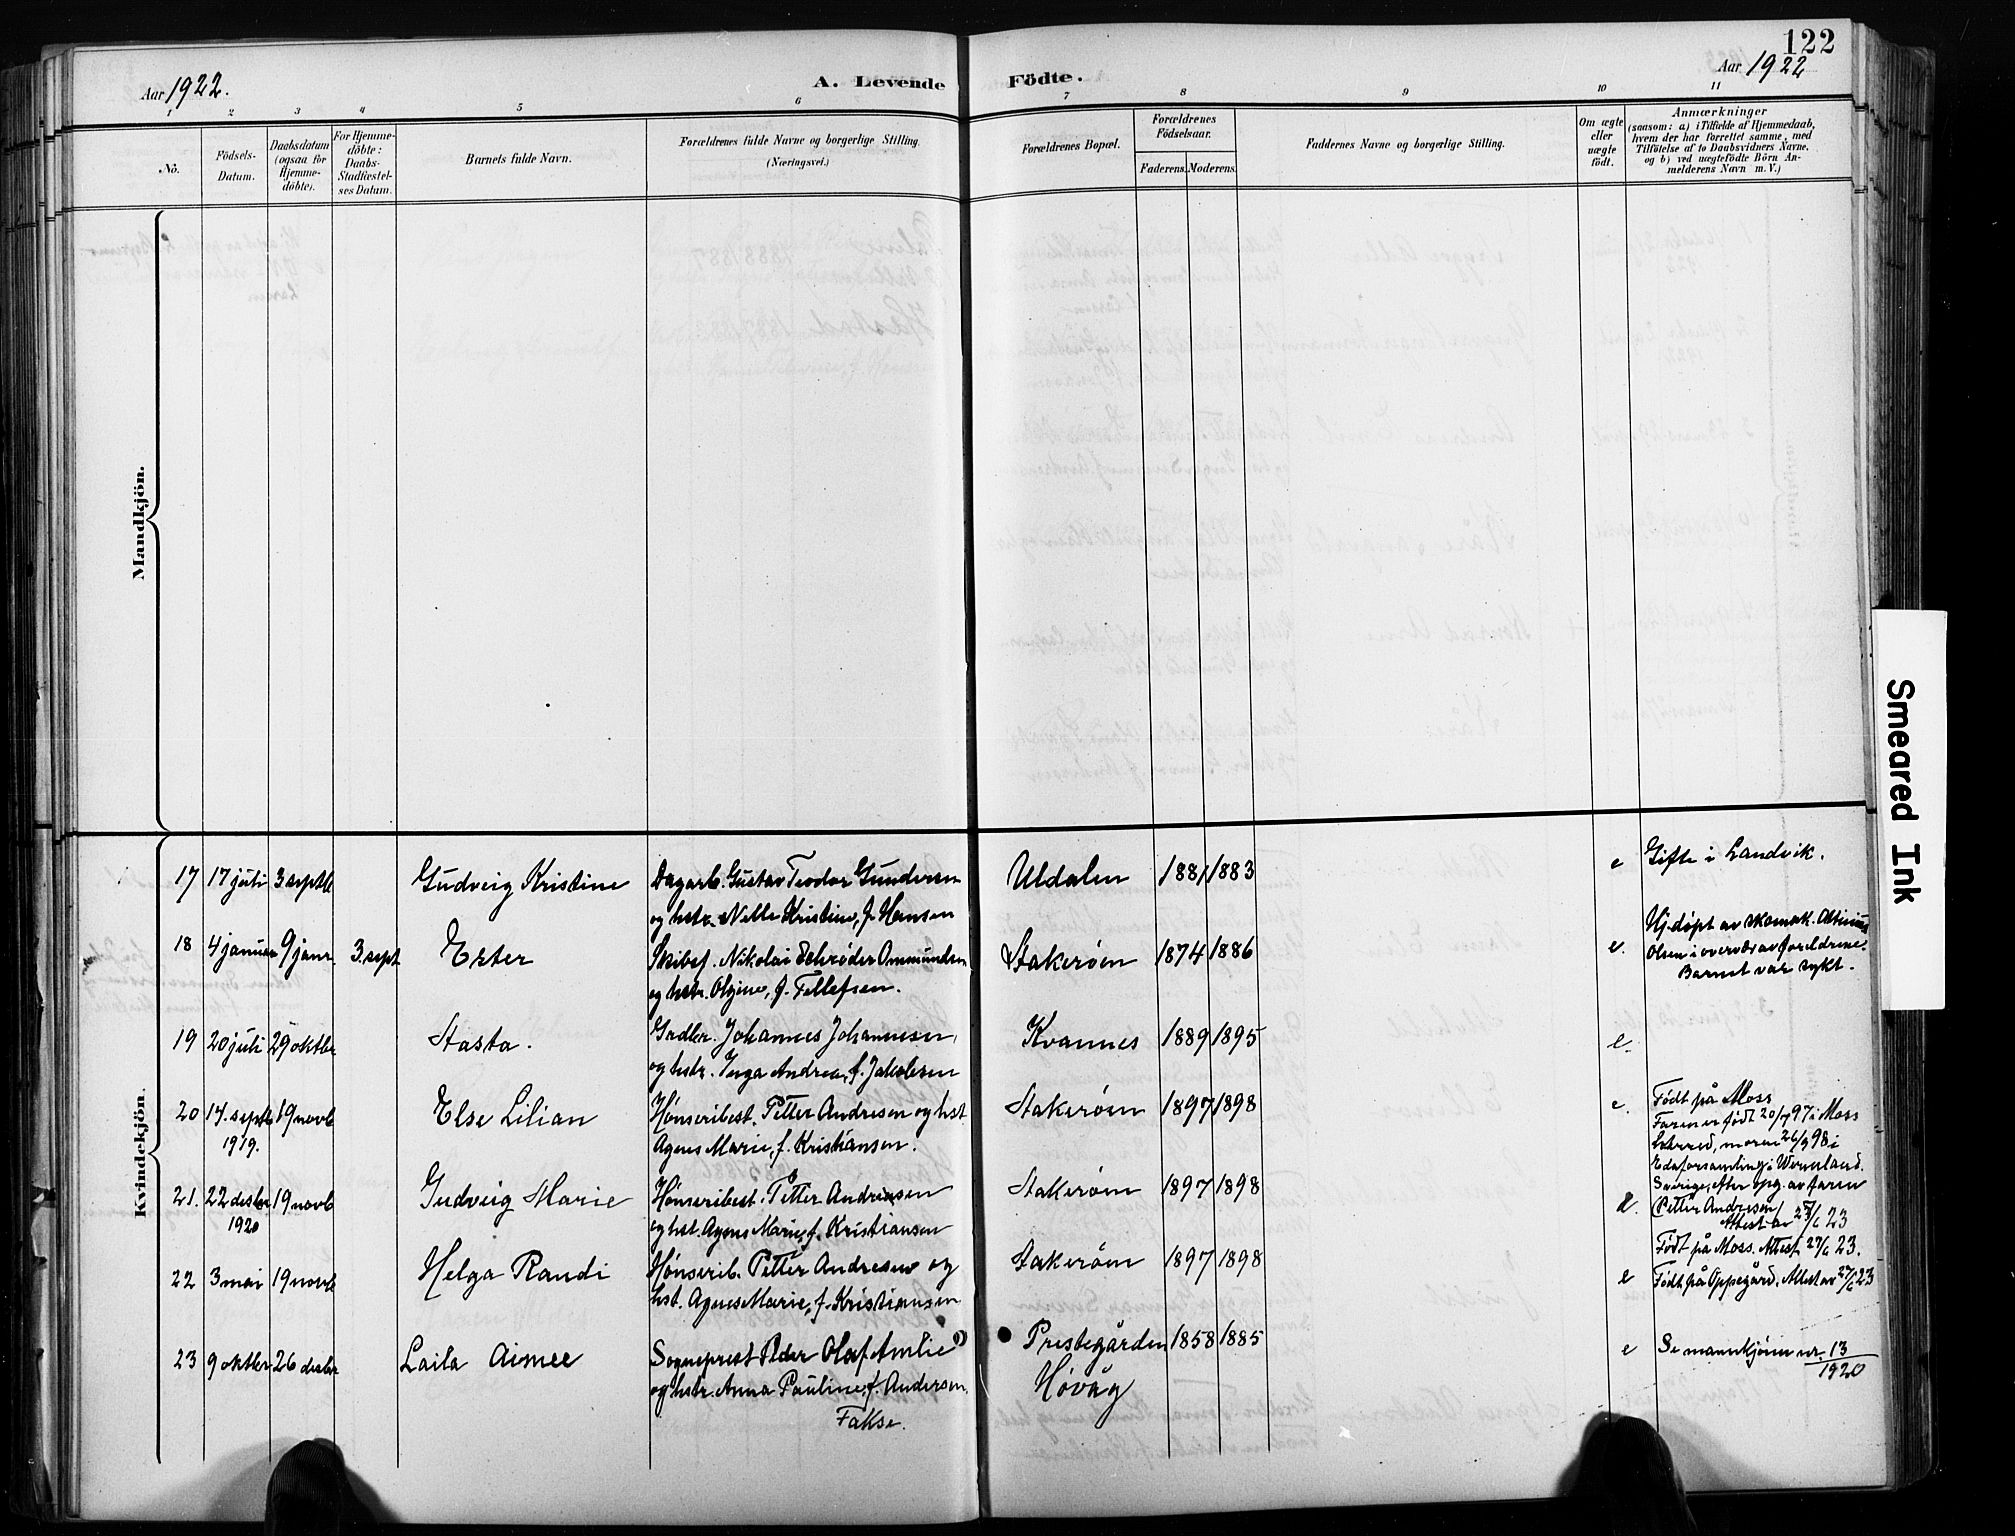 122
Aar 1922.
A. Levende
Födte.
Aar 1922
1 2 3 4 5 6 7 8 9 10 11
Nö.
Födsels-Datum.
Daabsdatum (ogsaa for Hjemme-döbte).
For Hjemme-döbte: Daabs-Stadfæstel-ses Datum.
Barnets fulde Navn.
Forældrenes fulde Navne og borgerlige Stilling.
(Næringsvei.)
Forældrenes Bopæl.
Forældrenes Födselsaar.
Faderens. Moderens.
Faddernes Navne og borgerlige Stilling.
Om ægte eller uægte födt.
Anmærkninger
(saasom: a) i Tilfælde af Hjemmedaab,
hvem der har forrettet samme, med
Tilföielse af to Daabsvidners Navne,
og b) ved uægtefödte Börn An-
melderens Navn m. V.)
Mandkjön.
Kvindekjön.
17 17 juli 3 septb Gudveig Kristine Dagarb. Gustav Teodor Gundersen Uldalen 1881 1883 e Gifte i Landvik.
og hstr. Nelle Kristine, f. Hansen
18 4 januar 9 janr 3. sept Ester Skibsf. Nikolai Schrøder Ommundsen Stakerøen 1874 1886 e. Hj.døpt av skomak.
og hstr. Olgine, f. Tellefsen.
Olsen i overvær av foreldrene.
Barnet var sykt.
19 20 juli 29 oktbr Aasta. Gadbr. Johannes Johannesen Kvannes 1889 1895 e.
og hstr. Inga Andrea, f. Jakobsen
20 14. septb 1919. 19 novb Else Lilian Hønseribest. Petter Andresen og hst Stakerøen 1897 1898 e. Født på Moss
Agnes Marie, f. Kristiansen.
Faren er født 20/7 97 i Moss
moren 26/9 98 i
Edaforsamling i Wermland.
Sverige, efter opg. av faren
Petter Andresen
Attest av 27/6 23
21. 22 desbr 1920 19 novb Gudveig Marie Hønseribest. Petter Andresen Stakerøen 1897 1898 e.
og hst. Agnes Marie, f. Kristiansen
Født på Moss. Attest 27/6 23.
22 3 mai 19 novb Helga Randi Hønserib. Petter Andresen og Stakerøen 1897 1898 e Født på Oppegård. Attest av 27/6 23
hst. Agnes Marie, f. Kristiansen
23 9 oktbr 26 desbr Laila Aimee Sogneprest Peder Olaf Amlie Prestegården 1858 1885 e Se mannkjønn nr. 13/1920
og hstr. Anna Pauline, f. Andersen Høvåg
Fakse.
Smeared Ink